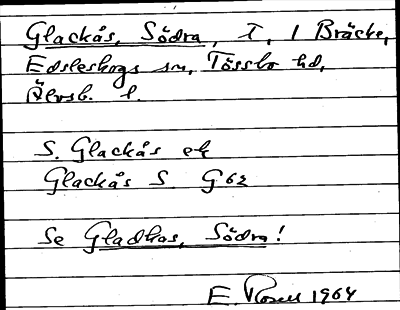 Glackås, Södra, T, 1 Bräcke,
Edsleskogs sn, Tössbo hd,
Älvsb. l.
S. Glackås ek
Glackås S. G62
Se Gladkas, Södra!
E. Rosell 1964